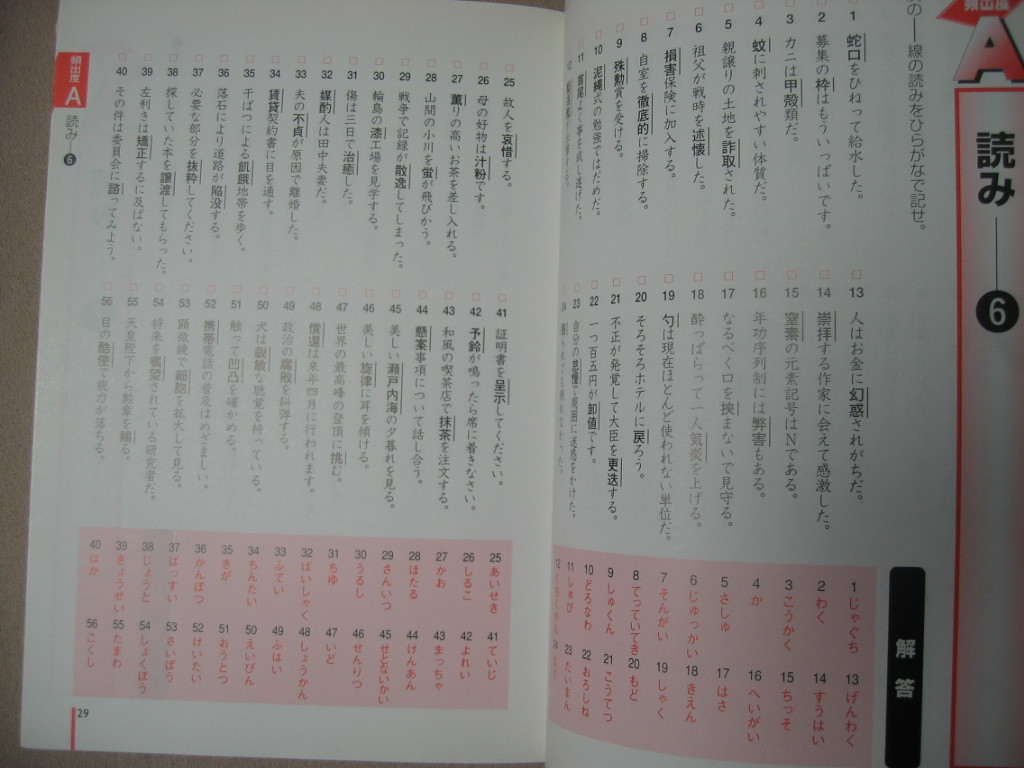 頻出度
A
読み
6
線の読みをひらがなで記せ。
1 蛇口をひねって給水した。
2 募集の枠はもういっぱいです。
3 カニは甲殻類だ。
4 蚊に刺されやすい体質だ。
5 親譲りの土地を詐取された。
6 祖父が戦時を述懐した。
7 損害保険に加入する。
8 自室を徹底的に掃除する。
9 殊勲賞を受ける。
10 泥縄式の勉強ではだめだ。
11 首尾よく事を成し遂げた。
12
13 人はお金に幻惑されがちだ。
14 崇拝する作家に会えて感激した。
15 窒素の元素記号はNである。
16 年功序列制には弊害もある。
17 なるべく口を挟まないで見守る。
18 酔っぱらって一人気炎を上げる。
19 勺は現在ほとんど使われない単位だ。
20 そろそろホテルに戻ろう。
21 不正が発覚して大臣を更迭する。
22 一つ百五円が卸値です。
23 自分の怠慢で周囲に迷惑をかけた。
24
解答
1 じゃぐち
2 わく
3 こうかく
4 か
5 さしゅ
6 じゅっかい
7 そんがい
8 てっていてき
9 しゅくん
10 どろなわ
11 しゅび
12
13 げんわく
14 すうはい
15 ちっそ
16 へいがい
17 はさ
18 きえん
19 しゃく
20 もど
21 こうてつ
22 おろしね
23 たいまん
25 故人を哀惜する。
26 母の好物は汁粉です。
27 薫りの高いお茶を差し入れる。
28 山間の小川を蛍が飛びかう。
29 戦争で記録が散逸してしまった。
30 輪島の漆工場を見学する。
31 傷は三日で治癒した。
32 媒酌人は田中夫妻だ。
33 夫の不貞が原因で離婚した。
34 賃貸契約書に目を通す。
35 干ばつによる飢餓地帯を歩く。
36 落石により道路が陥没する。
37 必要な部分を抜粋してください。
38 探していた本を譲渡してもらった。
39 左利きは矯正するに及ばない。
40 その件は委員会に諮ってみよう。
41 証明書を呈示してください。
42 予鈴が鳴ったら席に着きなさい。
43 和風の喫茶店で抹茶を注文する。
44 懸案事項について話し合う。
45 美しい瀬戸内海の夕暮れを見る。
46 美しい旋律に耳を傾ける。
47 世界の最高峰の登頂に挑む。
48 償還は来年四月に行われます。
49 政治の腐敗を糾弾する。
50 犬は鋭敏な聴覚を持っている。
51 触って凹凸を確かめる。
52 携帯電話の普及はめざましい。
53 顕微鏡で細胞を拡大して見る。
54 将来を嘱望されている研究者だ。
55 天皇陛下から勲章を賜る。
56 目の酷使で視力が落ちる。
25 あいせき
26 しるこ
27 かお
28 ほたる
29 さんいつ
30 うるし
31 ちゆ
32 ばいしゃく
33 ふてい
34 ちんたい
35 きが
36 かんぼつ
37 ばっすい
38 じょうと
39 きょうせい
40 はか
41 ていじ
42 よれい
43 まっちゃ
44 けんあん
45 せとないかい
46 せんりつ
47 いど
48 しょうかん
49 ふはい
50 えいびん
51 おうとつ
52 けいたい
53 さいぼう
54 しょくぼう
55 たまわ
56 こくし
頻出度 A 読み 6
29